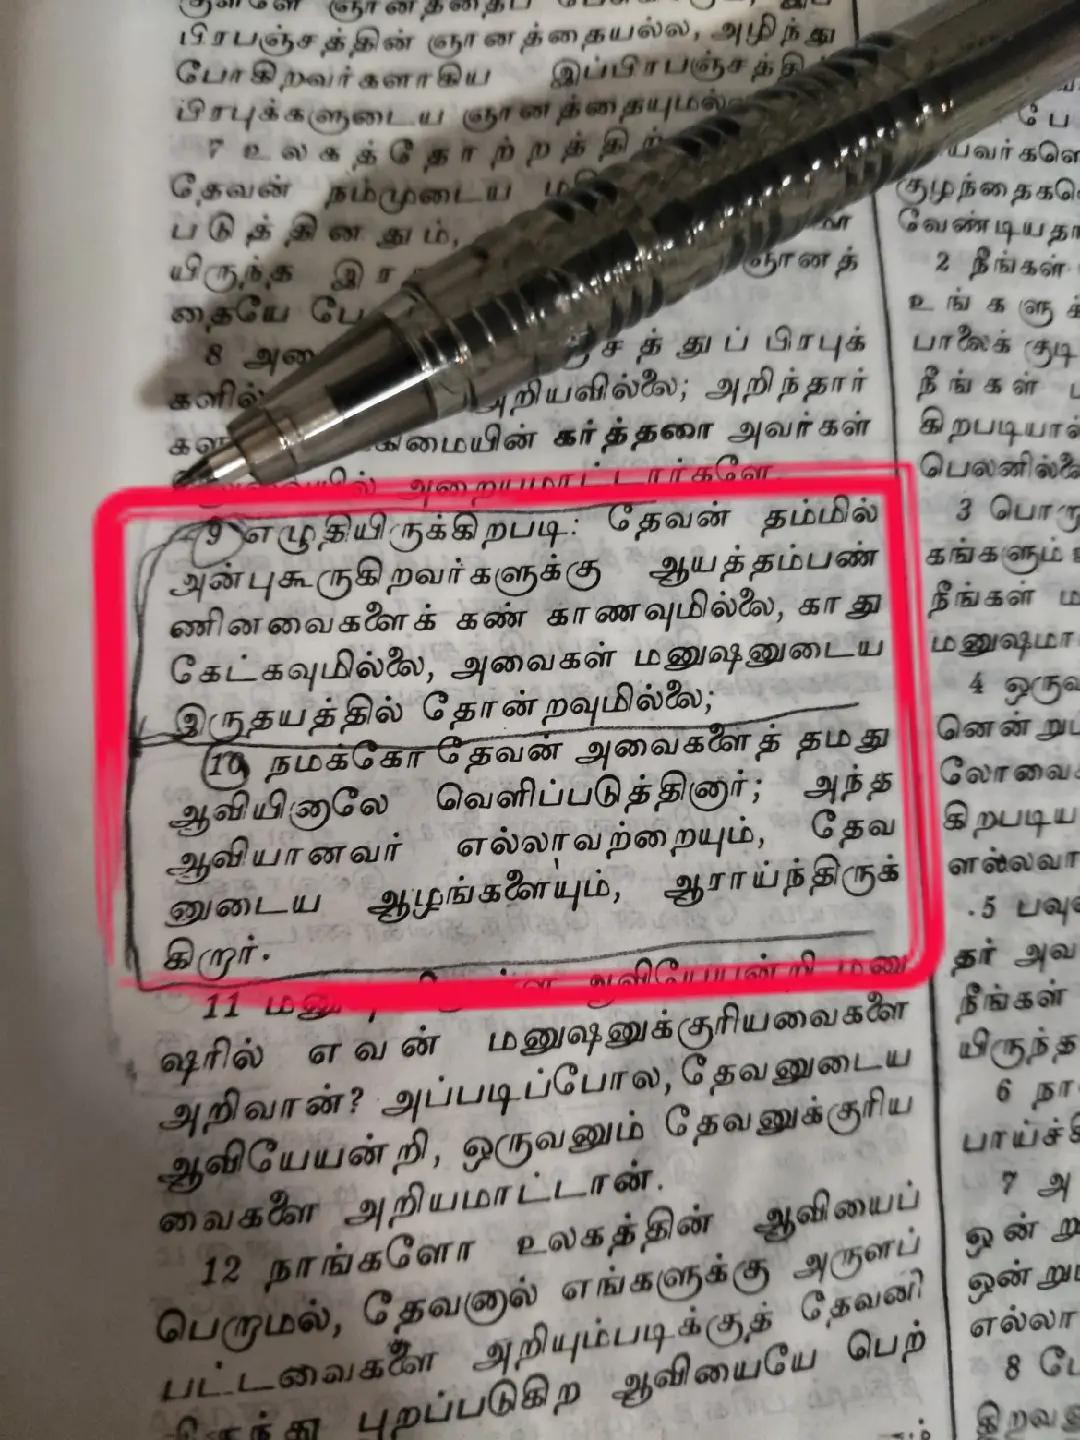 பிரபஞ்சத்தின் ஞானத்தையல்ல, அழிந்து
போகிறவர்களாகிய இப்பிரபஞ்சத்தி
பிரபுக்களுடைய ஞானத்தையுமல்
7 உலகத்தோற்றத்திற்
தேவன் நம்முடைய
படுத்தினதும்,
யிருந்த ஞானத்
தையே பே
8 சத்துப் பிரபுக்
களில் அறியவில்லை; அறிந்தார்
கிமையின் கர்த்தரை அவர்கள்
அறையமாட்டார்களே.
9 எழுதியிருக்கிறபடி: தேவன் தம்மில்
அன்புகூருகிறவர்களுக்கு ஆயத்தம்பண்
ணினவைகளைக் கண் காணவுமில்லை, காது
கேட்கவுமில்லை, அவைகள் மனுஷனுடைய
இருதயத்தில் தோன்றவுமில்லை;
10 நமக்கோ தேவன் அவைகளைத் தமது
ஆவியினாலே வெளிப்படுத்தினார்; அந்த
ஆவியானவர் எல்லாவற்றையும், தேவ
னுடைய ஆழங்களையும், ஆராய்ந்திருக்
கிறார்.
11 ஆவியேயன்றி மனு
ஷரில் எவன் மனுஷனுக்குரியவைகளை
அறிவான்? அப்படிப்போல, தேவனுடைய
ஆவியேயன்றி, ஒருவனும் தேவனுக்குரிய
வைகளை அறியமாட்டான்.
12 நாங்களோ உலகத்தின் ஆவியைப்
பெறாமல், தேவனால் எங்களுக்கு அருளப்
பட்டவைகளை அறியும்படிக்குத் தேவனி
லிருந்து புறப்படுகிற ஆவியையே பெற்
யவர்களெ
குழந்தைகளெ
வேண்டியதா
2 நீங்கள்
உங்களுக்
பாலைக் குடி
நீங்கள்
கிறபடியால்
பெலனில்லை
3 பொரு
கங்களும்
நீங்கள் ம
மனுஷமா
4 ஒருவ
னென்று
லோவை
கிறபடிய
ளல்லவா
5 பவு
தர் அவ
நீங்கள்
யிருந்த
6 நா
பாய்ச்சி
7 அ
ஒன்று
ஒன்று
எல்லா
8 மே
இறவ